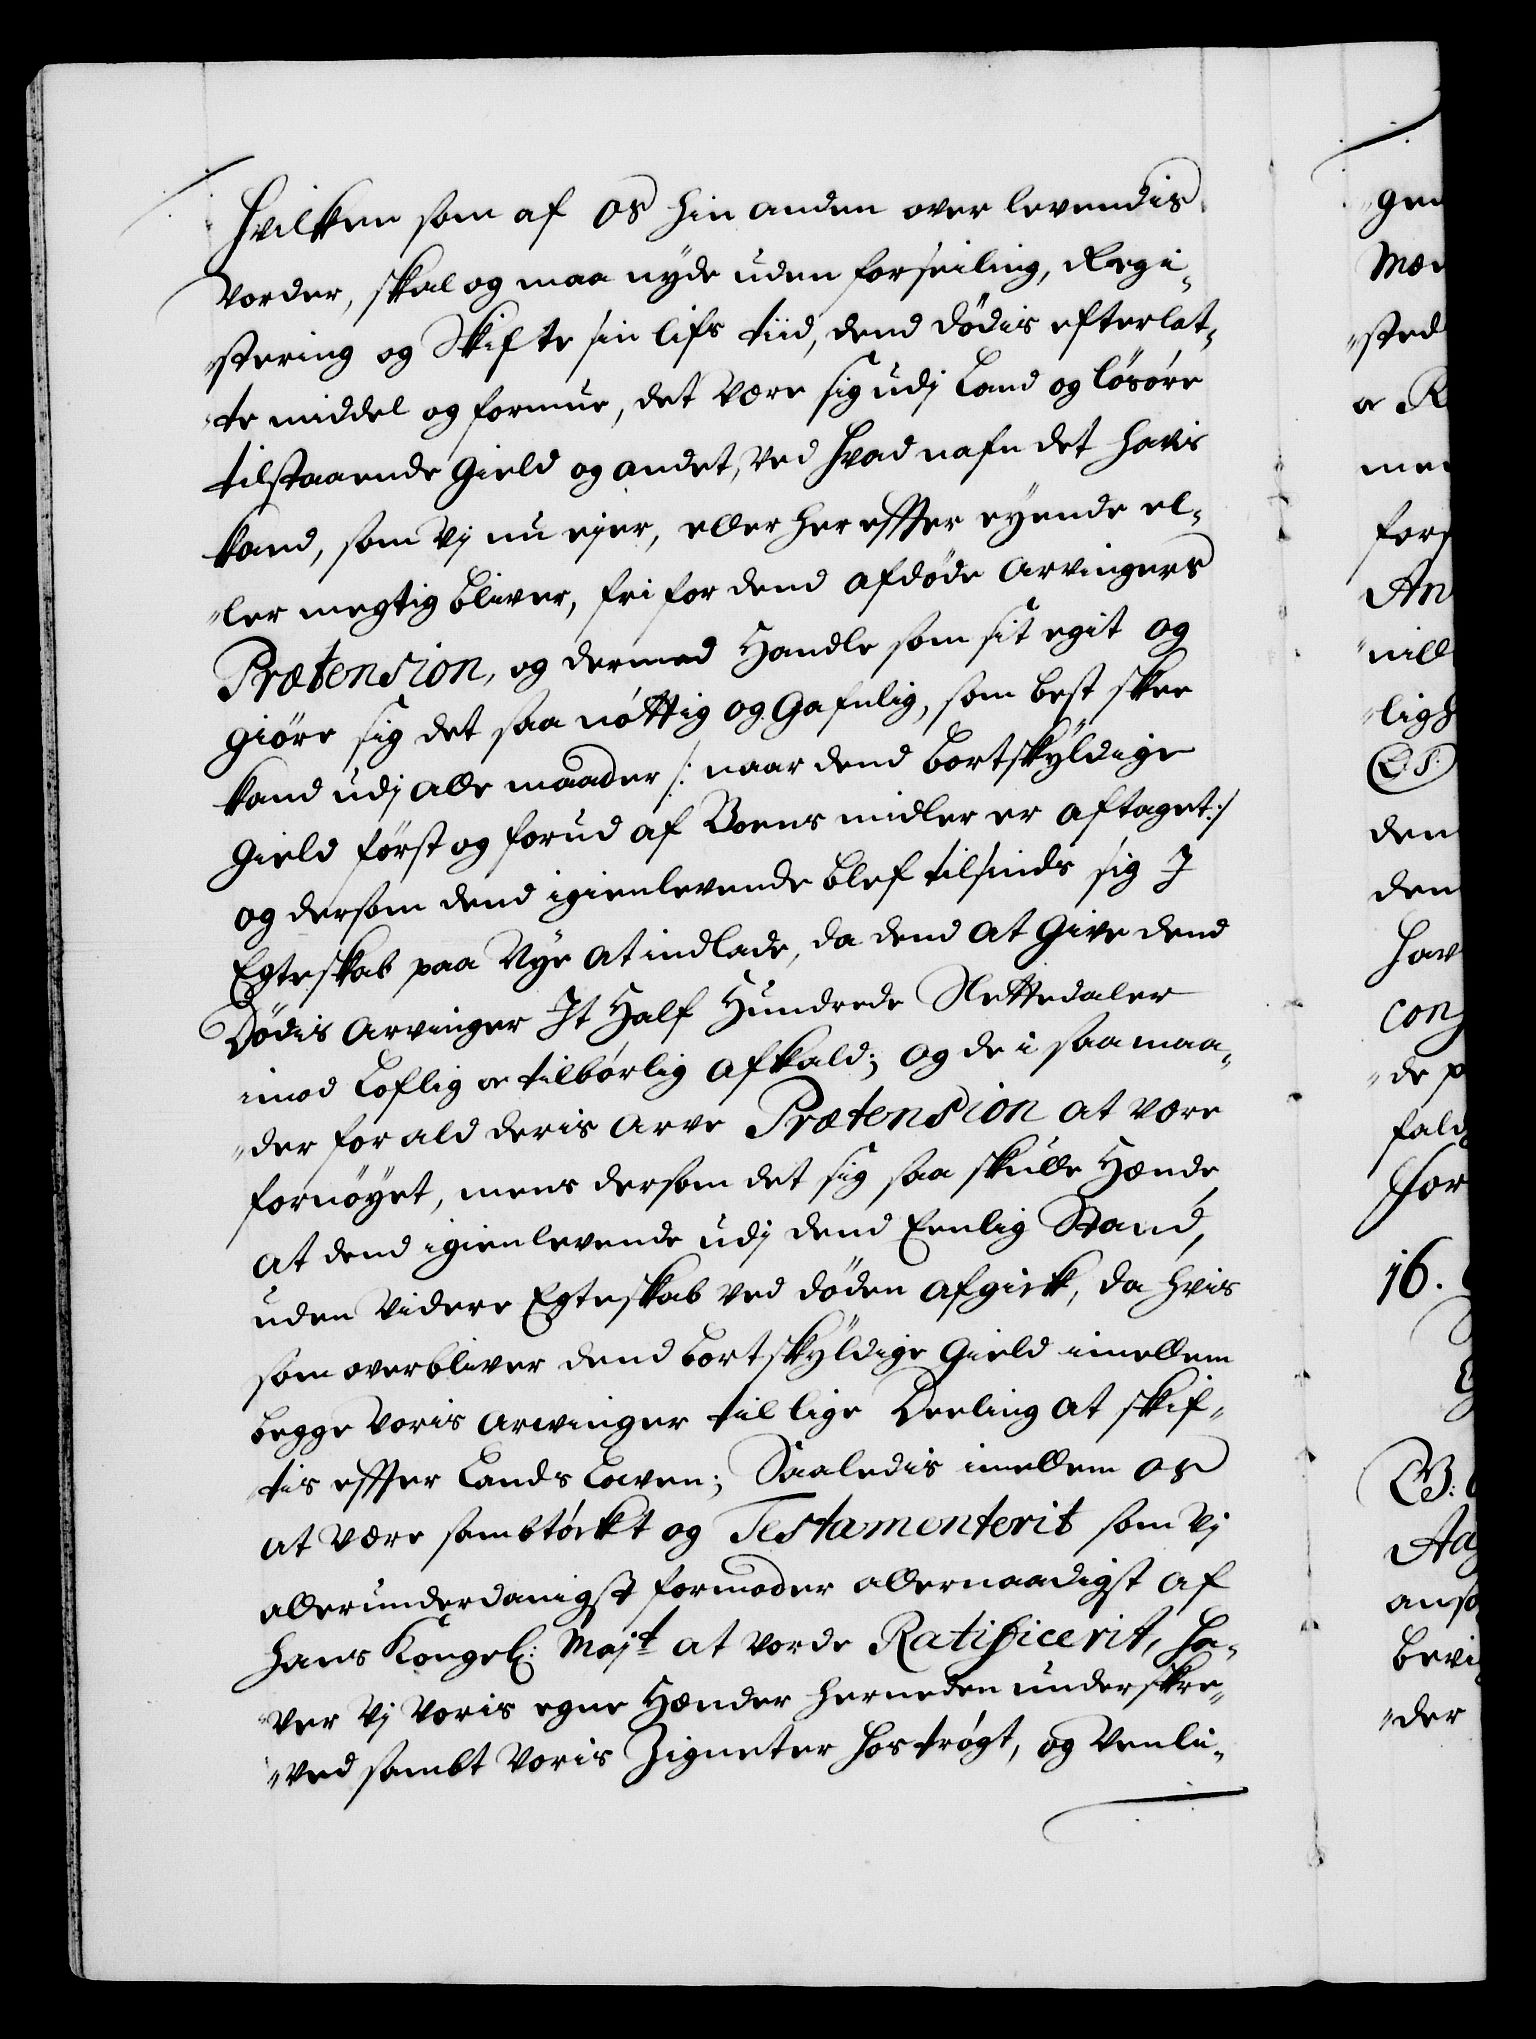 Hvilken som af os hin anden over levendis
vorder, skal og maa nyde uden forseiling, Regi¬
stering og Skifte sin lifs tiid, dend dødis efterlat¬
te middel og formue, det være sig udj Land og løsøre
tilstaaende Gield og andet, ved hvad nafn det havis
kand, som Vj nu ejer, eller her effter eyende el¬
ler megtig bliver, fri for dend afdøde Arvingers
Prætension, og dermed Handle som sit eget og
giøre sig det saa nøttig og Gafnlig, som best skee
kand udj alle maader /: naar dend bortskyldige
Gield først og forud af Boens midler er aftaget :/
og dersom dend igienlevende blef tilsinds sig J
Egteskab paa Nye at indlade, da dend at Give dend
Dødis Arvinger It Half Hundrede Slettedaler
imod Loflig og tilbørlig afkald; og de i saa maa¬
der for ald deris Arve Prætension at være
fornøyet, mens dersom det sig saa skulle Hænde,
at dend igienlevende udj dend Eenlig Stand,
uden videre Egteskab ved døden afgick, da hvis
som overbliver dend bortskyldige Gield imellem
begge voris Arvinger till lige Deeling at skif¬
tis effter Lands Loven; Saaledis imellem os
at være sambtøckt og Testamenterit som Vj
allerunderdanigst formoder allernaadigst af
Hans Kongel: Majt at vorde Ratificerit, ha¬
ver Vj Voris egne Hænder herneden underskre¬
ved sambt Voris Zigneter hostrøgt, og venli¬
gen
Mæn
sted
forf
An
nill
ligh
den
den
hav
con
de p
fald
for
16.
bevi
der